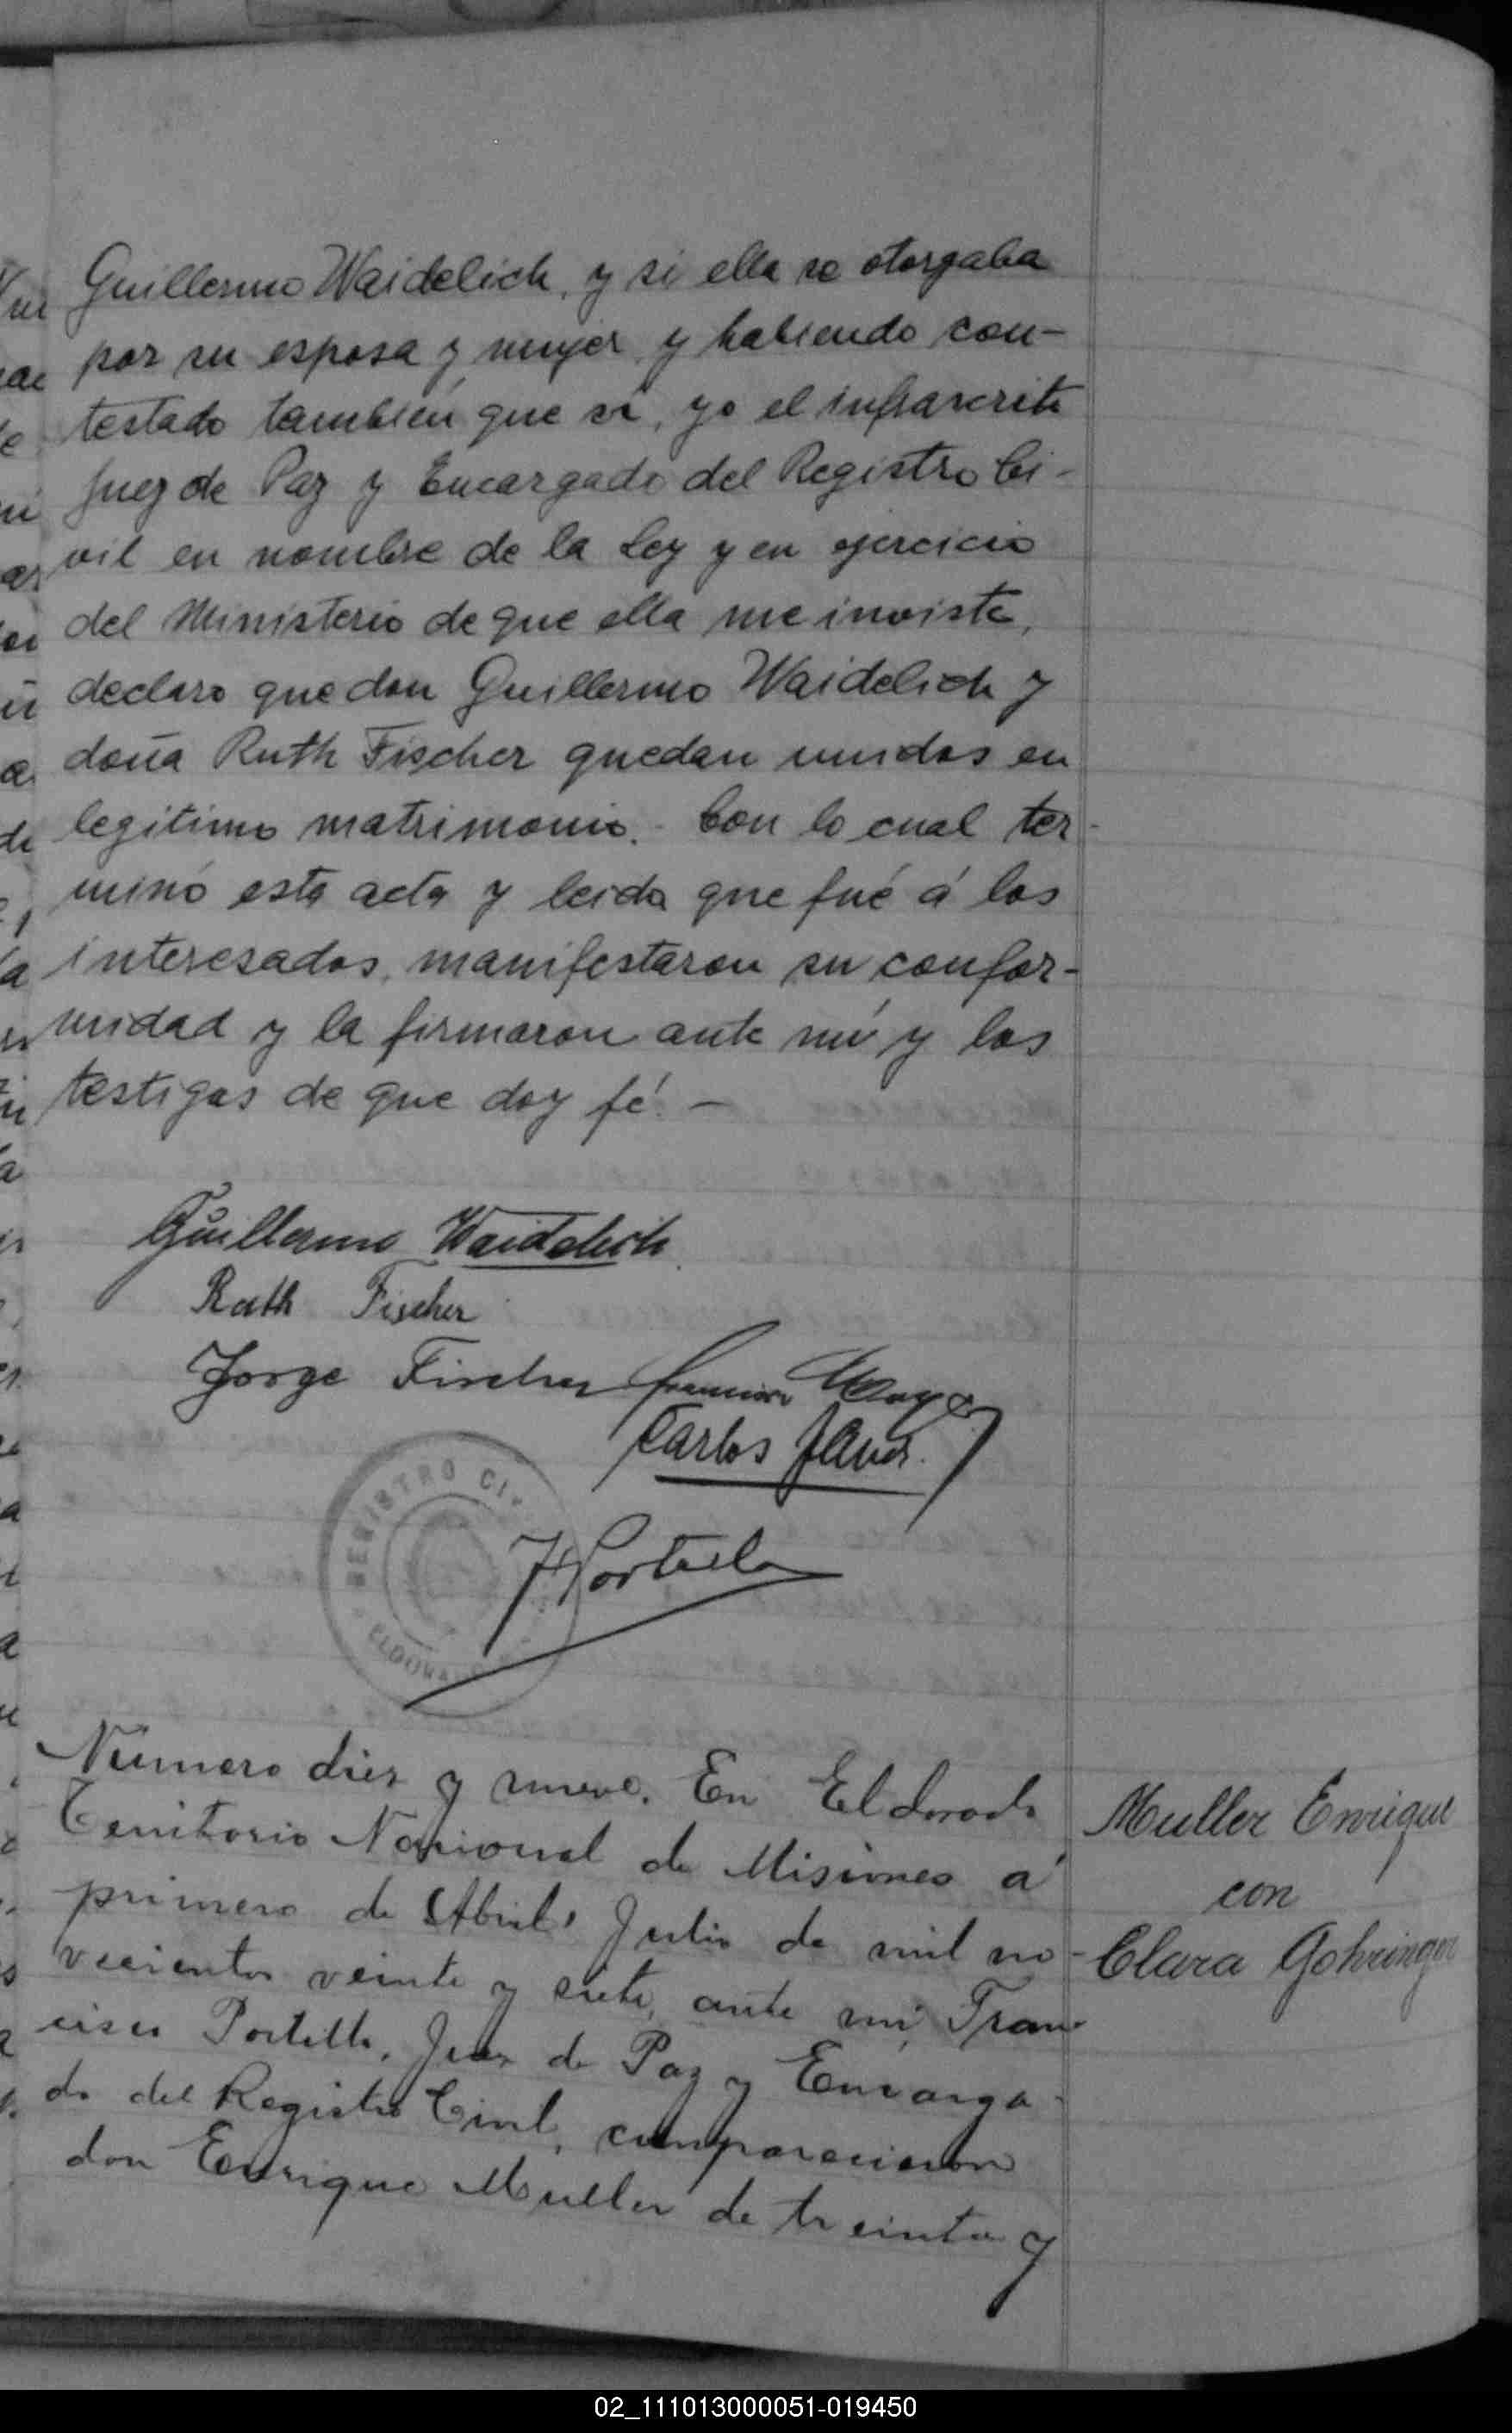 Guillermo Waidelich, y si ella se otorgaba
por su esposa y mujer, y habiendo con-
testado también que si, yo el infrascrito
Juez de Paz y Encargado del Registro Ci-
vil en nombre de la Ley y en ejercicio
del Ministerio de que ella me inviste,
declaro que don Guillermo Waidelich y
doña Ruth Fischer quedan unidos en
legitimo matrimonio. - Con lo cual ter-
minó esta acta y leida que fué á los
interesados, manifestaron su confor-
midad y la firmaron ante mí y los
testigos de que doy fé. -
Guillermo Waidelich
Ruth Fischer
Jorge Fischer Francisco
Carlos
REGISTRO CI
ELDORA
Portillo
Número diez y nueve. En Eldorado
Territorio Nacional de Misiones á
primero de Abril, Julio de mil no-
vecientos veinte y siete, ante mi, Fran-
cisco Portillo, Juez de Paz y Encarga-
do del Registro Civil, comparecieron
don Enrique Muller de treinta y
Muller Enrique
con
Clara Gohringer
02_111013000051-019450